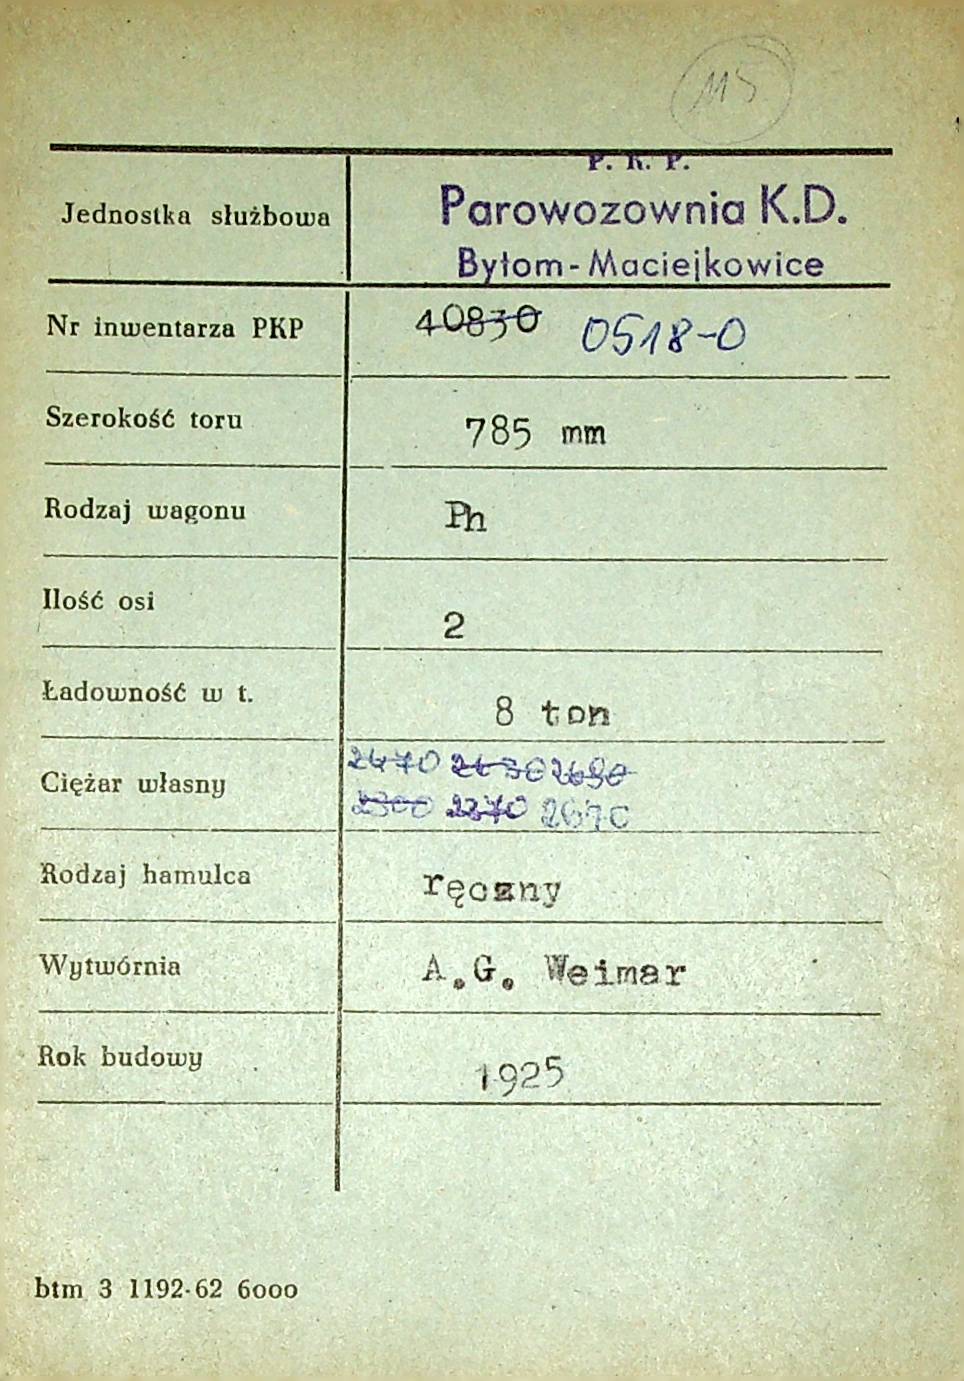 115
P. K. P.
Jednostka służbowa Parowozownia K.D.
Bytom-Maciejkowice
Nr inwentarza PKP 40830 0518-0
Szerokość toru 785 mm
Rodzaj wagonu Ph
Ilość osi 2
Ładowność w t. 8 ton
Ciężar własny 2470 2430 2680
2300 2370 2670
Rodzaj hamulca ręczny
Wytwórnia A.G. Weimar
Rok budowy 1925
btm 3 1192-62 6000